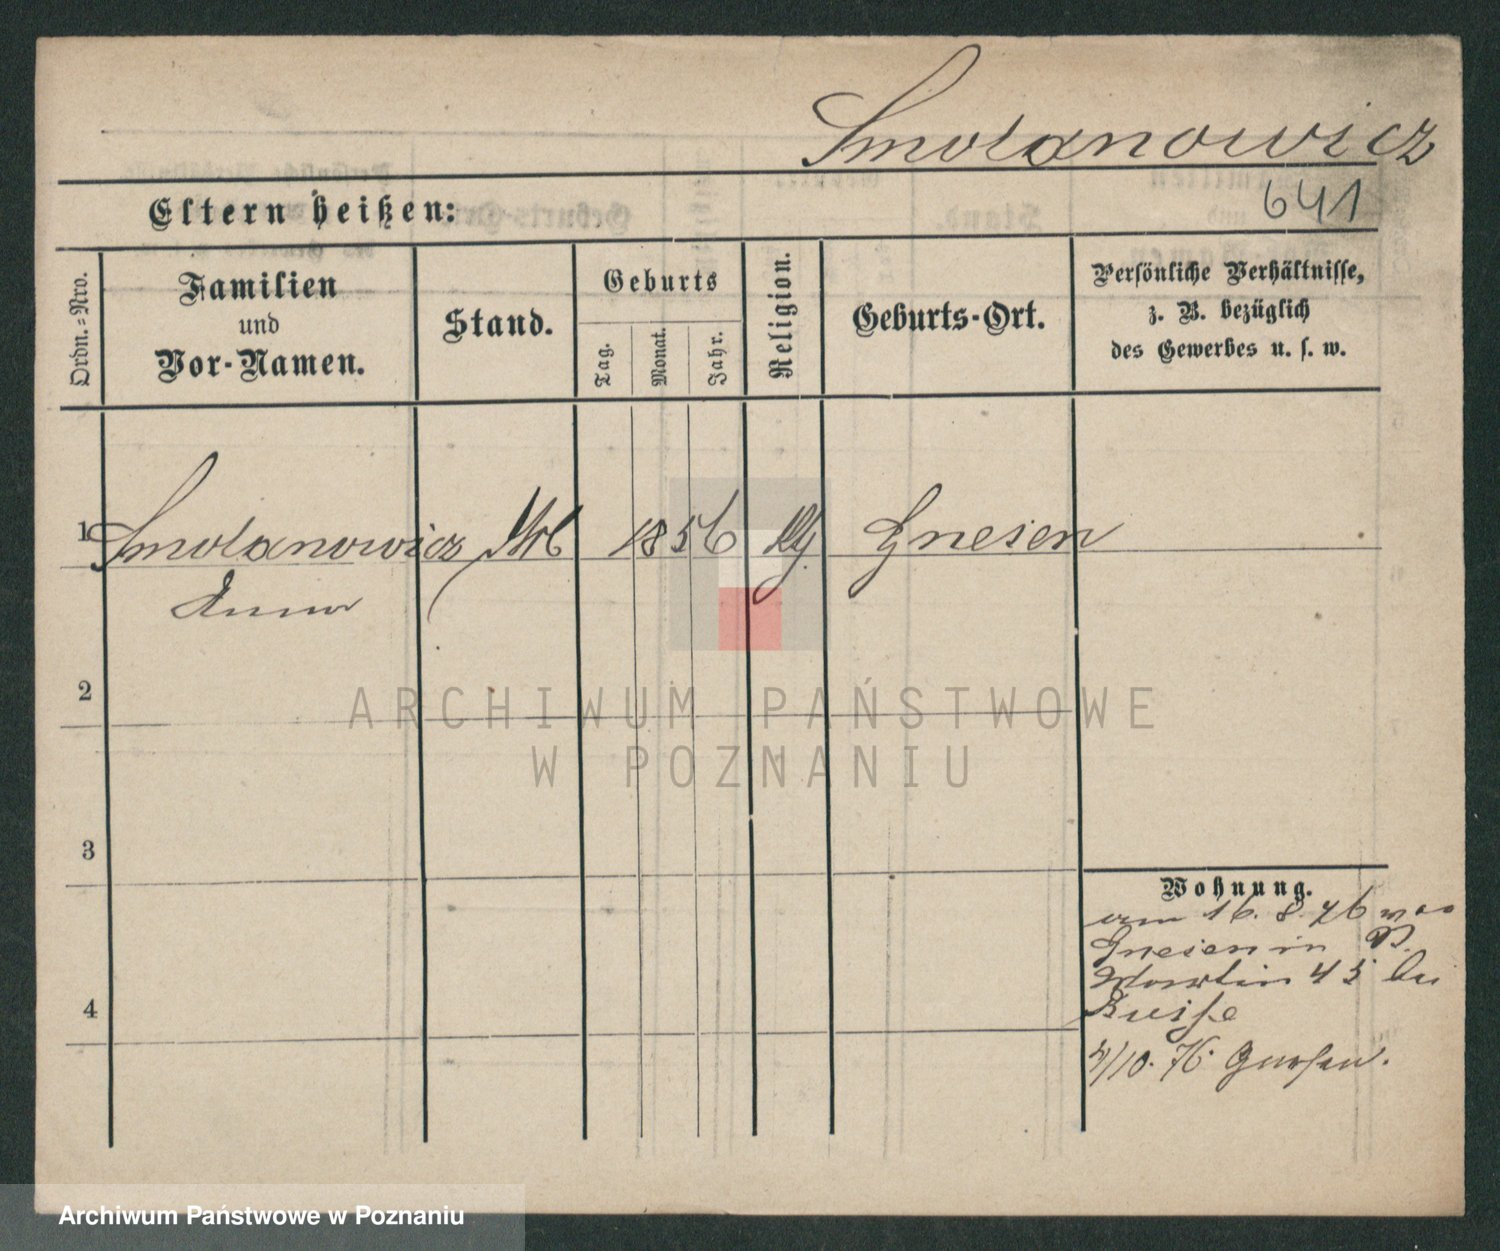 Smolanowicz
641
Eltern heißen:
Ordn.-Nro.
Familien
und
Vor-Namen.
Stand.
Geburts
Tag.
Monat.
Jahr.
Religion.
Geburts-Ort.
Persönliche Verhältnisse,
z. B. bezüglich
des Gewerbes u. s. w.
1 Smolanowicz 1856 Gnesen
Anna
2
ARCHIWUM PAŃSTWOWE
W POZNANIU
3
Wohnung.
am 16. 8. 76 von
Gnesen in
Martin 45 bei
4
/10. 76. Gnesen.
Archiwum Państwowe w Poznaniu